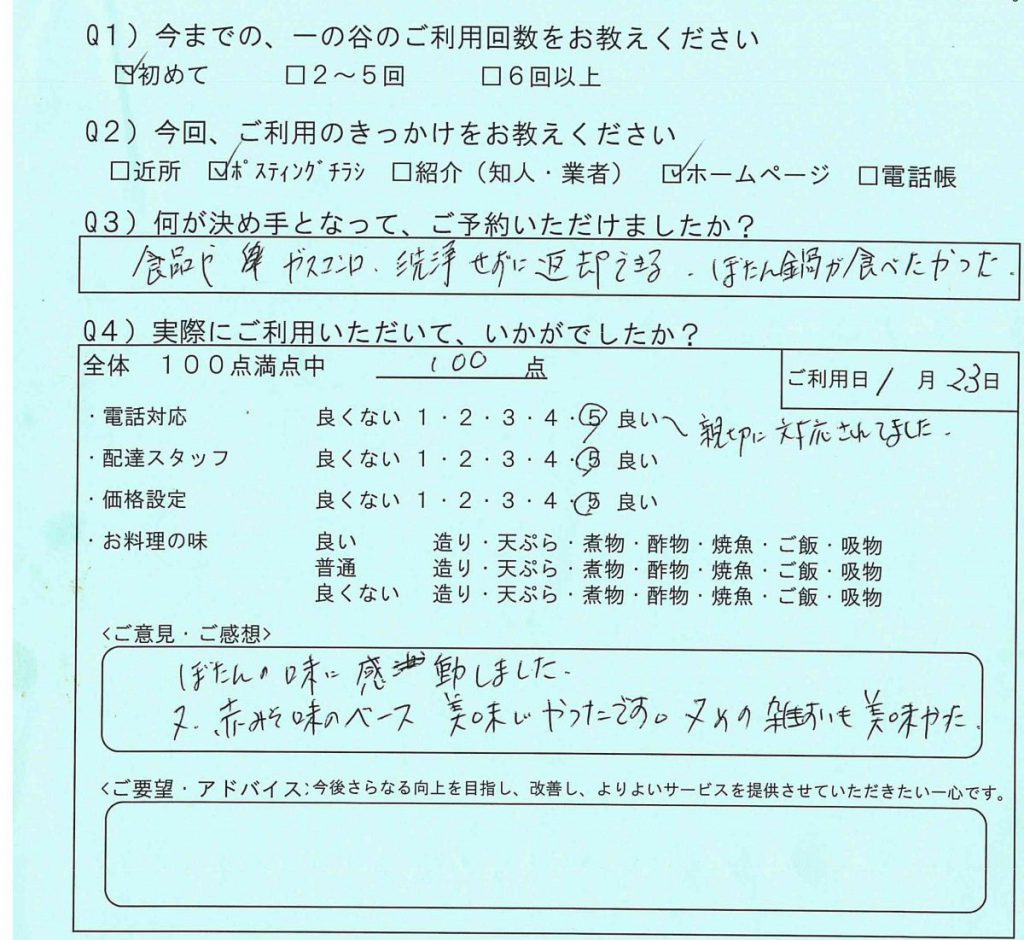 Q1）今までの、一の谷のご利用回数をお教えください
☑初めて □2～5回 □6回以上
Q2）今回、ご利用のきっかけをお教えください
□近所 ☑ポスティングチラシ □紹介（知人・業者） ☑ホームページ □電話帳
Q3）何が決め手となって、ご予約いただけましたか？
食品や ガスコンロ、洗浄せずに返却できる。ぼたん鍋が食べたかった。
Q4）実際にご利用いただいて、いかがでしたか？
全体 100点満点中 100 点
ご利用日 1 月 23日
・電話対応 良くない 1・2・3・4・5 良い 親切に対応されてました。
・配達スタッフ 良くない 1・2・3・4・5 良い
・価格設定 良くない 1・2・3・4・5 良い
・お料理の味 良い 造り・天ぷら・煮物・酢物・焼魚・ご飯・吸物
普通 造り・天ぷら・煮物・酢物・焼魚・ご飯・吸物
良くない 造り・天ぷら・煮物・酢物・焼魚・ご飯・吸物
<ご意見・ご感想>
ぼたんの味に感動しました。
又、赤みそ味のベース 美味しかったです。〆めの雑すいも美味かった。
<ご要望・アドバイス:今後さらなる向上を目指し、改善し、よりよいサービスを提供させていただきたい一心です。